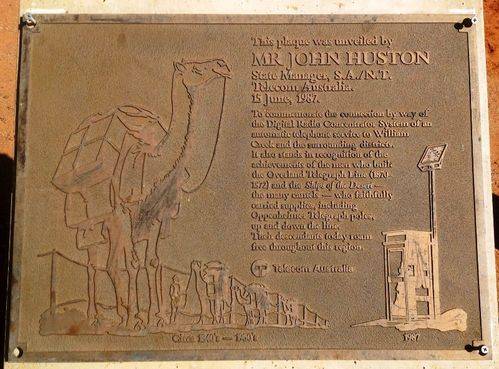 This plaque was unveiled by
MR JOHN HUSTON
State Manager, S.A./N.T.
Telecom Australia.
15 June, 1987.
To commemorate the connection by way of
the Digital Radio Concentrator System of an
automatic telephone service to William
Creek and the surrounding districts.
It also stands in recognition of the
achievements of the men who built
the Overland Telegraph Line (1870-
1872) and the Ships of the Desert —
the many camels — who faithfully
carried supplies, including
Oppenheimer Telegraph poles,
up and down the line.
Their descendants today roam
free throughout this region.
Telecom Australia
Circa
1987